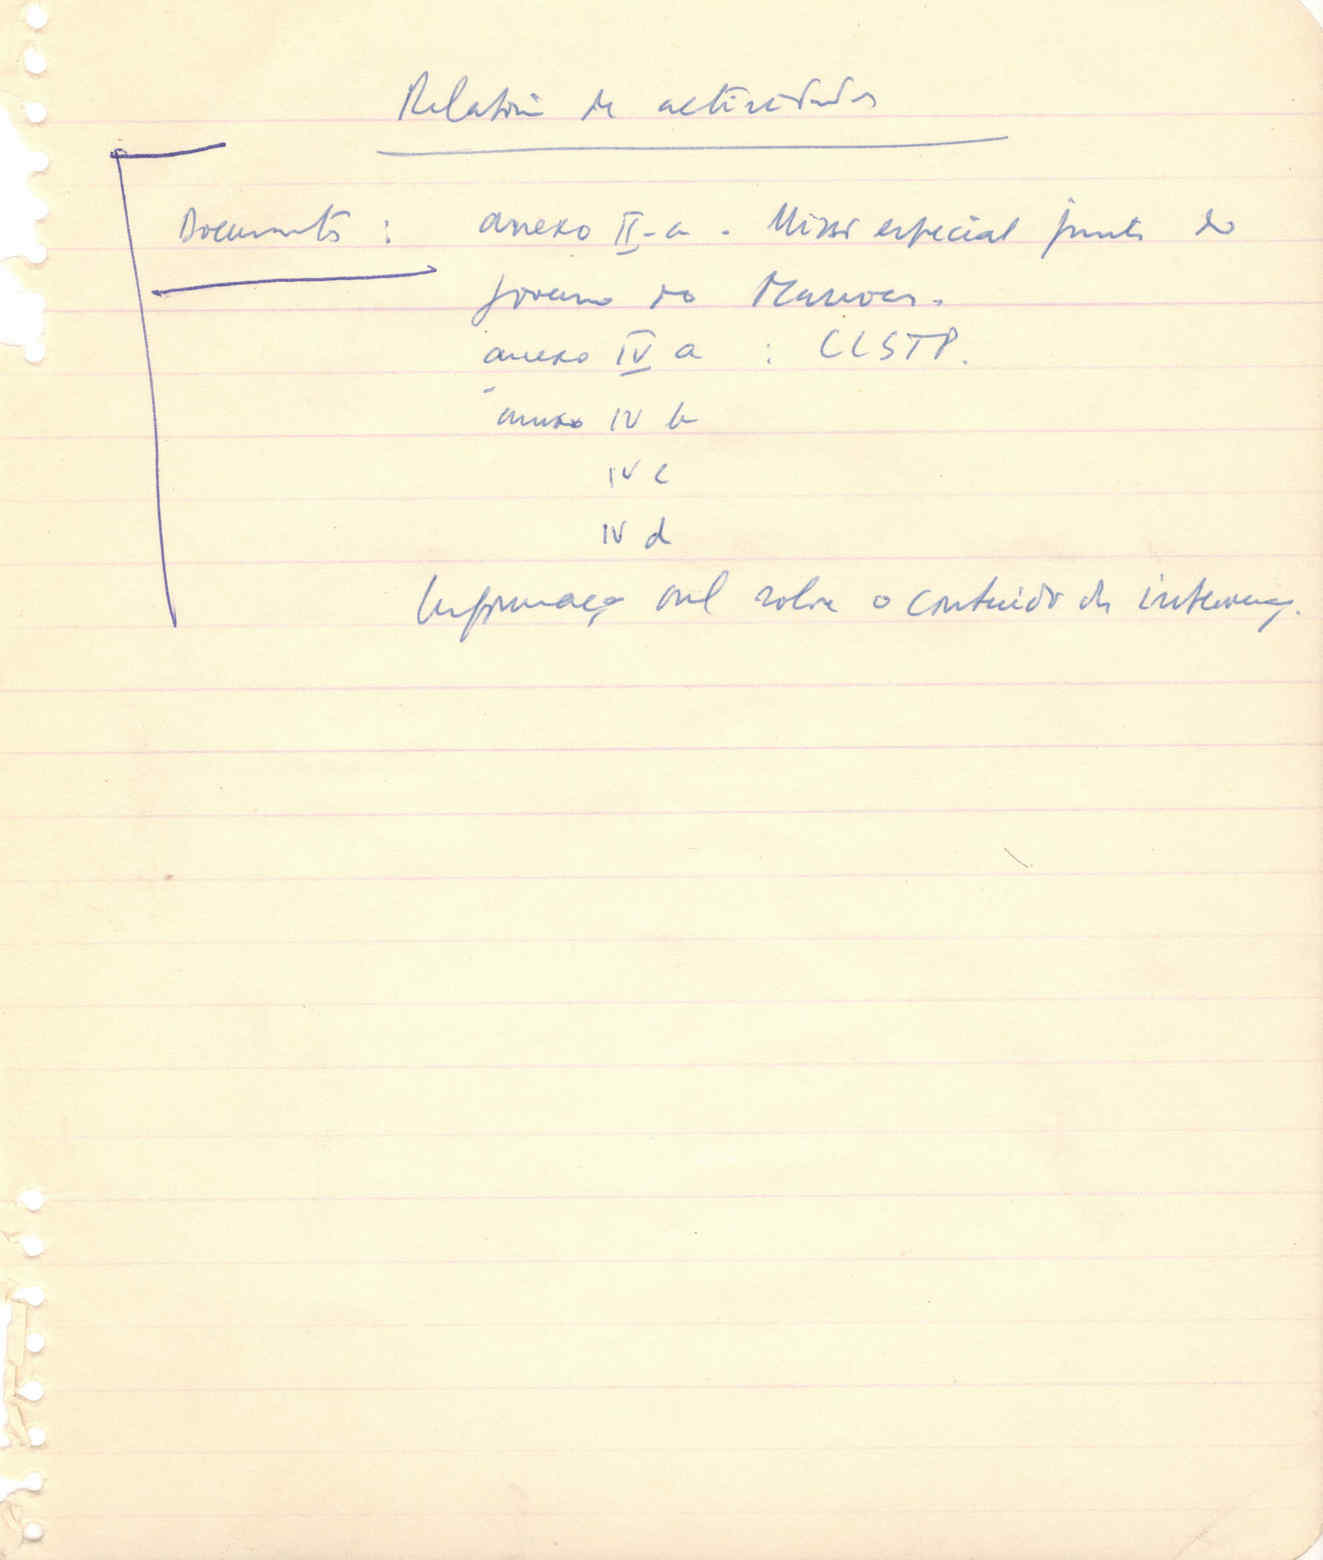 Relatório de actividades
Documentos : anexo II-a - Missão especial junto do
governo de Marrocos.
anexo IV a : CLSTP.
anexo IV b
IV c
IV d
Informação oral sobre o conteúdo da